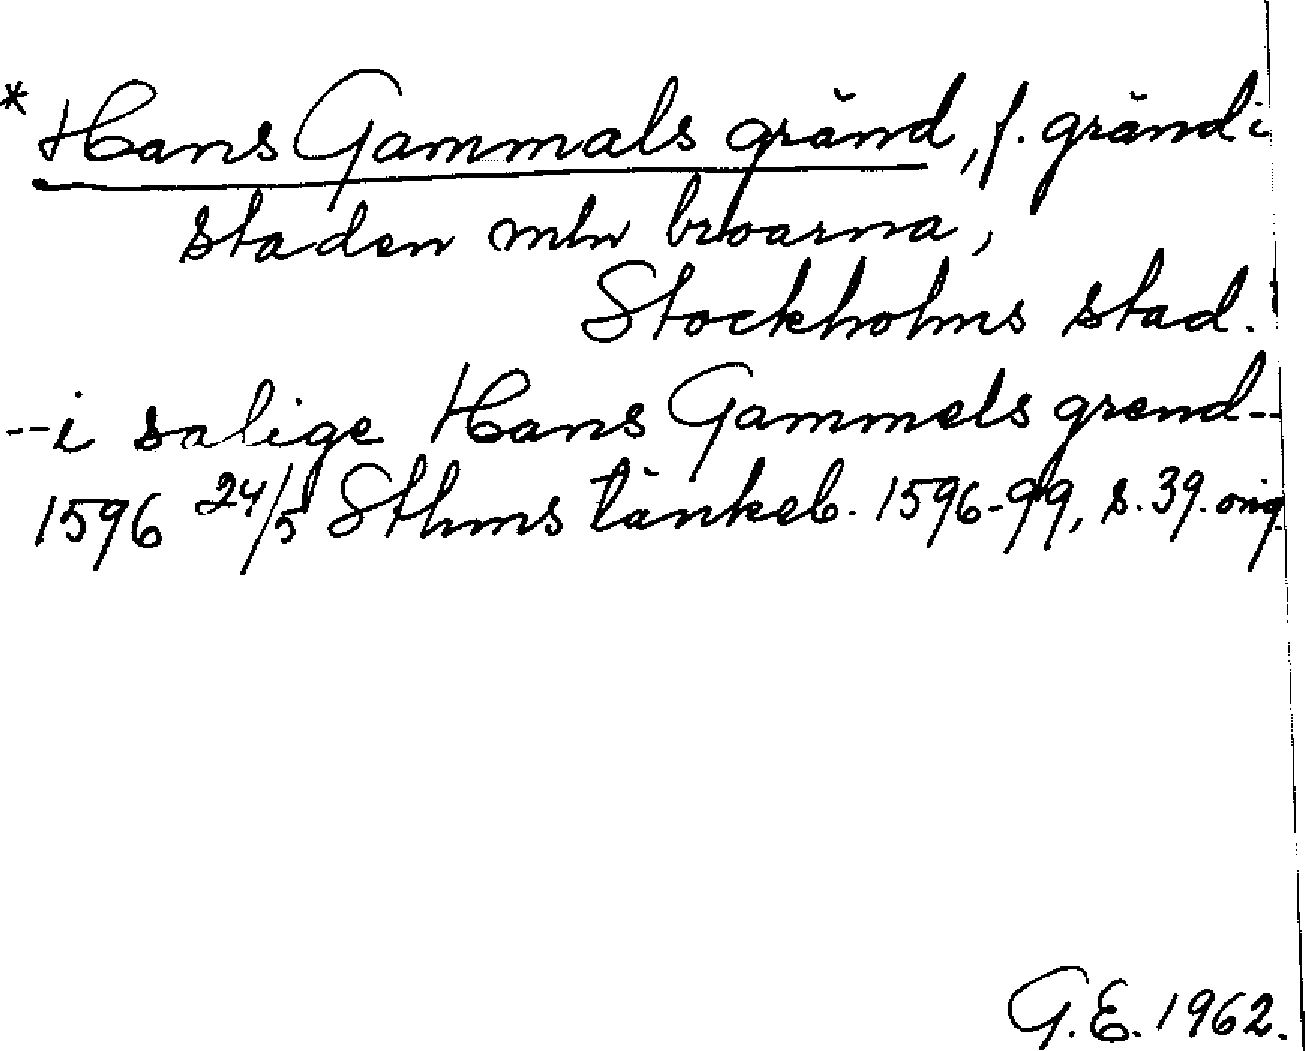 * Hans Gammals gränd, f. gränd i
staden mln broarna,
Stockholms stad.
--i salige Hans Gammels grend--
1596 24/5 Sthms tänkeb. 1596-99, s. 39. orig.
G.E. 1962.